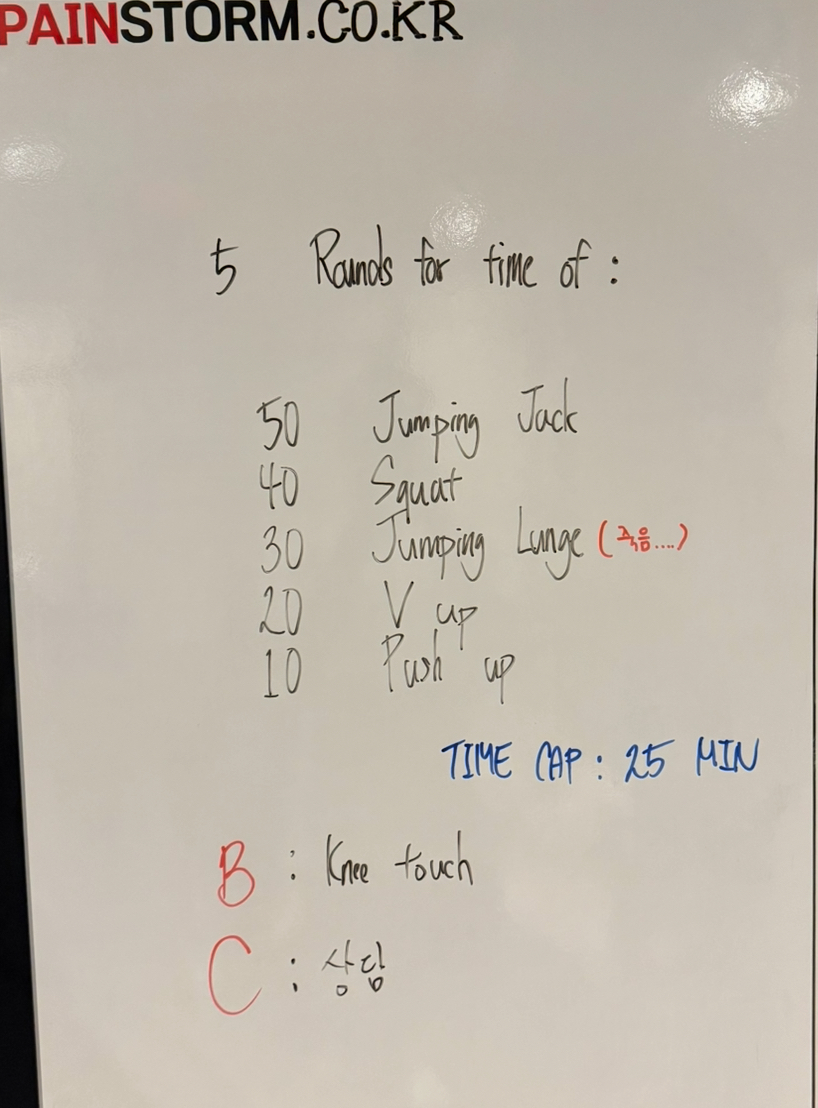 PAINSTORM.CO.KR
5 Rounds for time of :
50 Jumping Jack
40 Squat
30 Jumping Lunge (죽음....)
20 V up
10 Push up
TIME CAP : 25 MIN
B : Knee touch
C : 상담